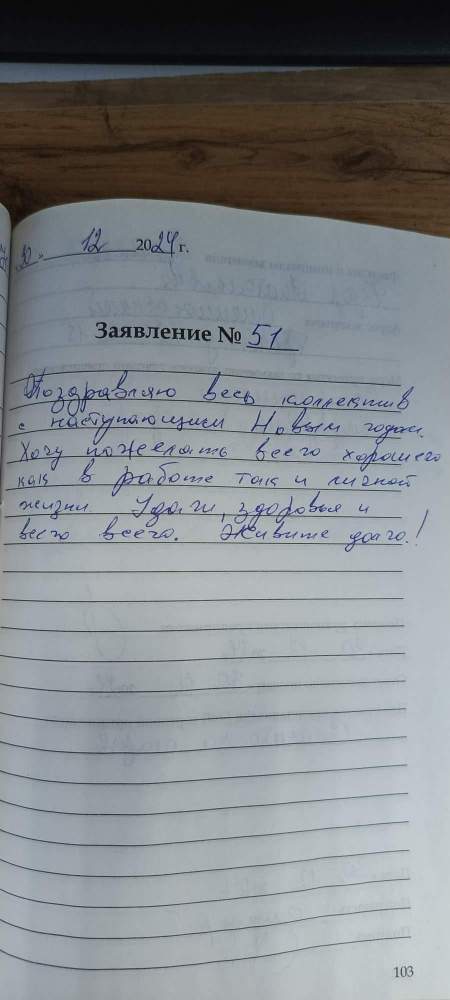 30. 12 2024 г.
Заявление № 51
Поздравляю весь коллектив
с наступающим Новым годом.
Хочу пожелать всего хорошего
как в работе так и личной
жизни Удачи, здоровья и
всего всего. Живите долго.!
103